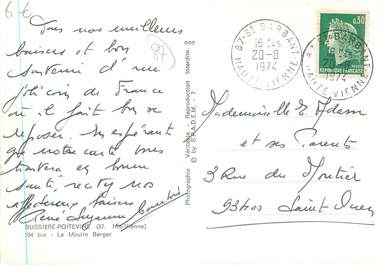 6 €
97
Tous nos meilleurs
baisers et bon
souvenir d'un
joli coin de France
où il fait bon se
reposer. En espérant
que notre carte vous
trouvera en bonne
santé, recevez nos
affectueux baisers
René Suzanne
BUSSIERE-POITEVINE (87. Hte-Vienne)
104 bis - Le Moulin Berger
Photographie Véritable - Reproduction Interdite.
© by S.P.A.D.E.M.
87-ST BARBANT
18 H45
20-8
1974
HAUTE VIENNE
0,30
REPUBLIQUE FRANÇAISE
87-ST BARBANT
1974
HAUTE VIENNE
Mademoiselle E. Adam
et ses Parents
3 Rue du Moutier
93400 Saint-Ouen